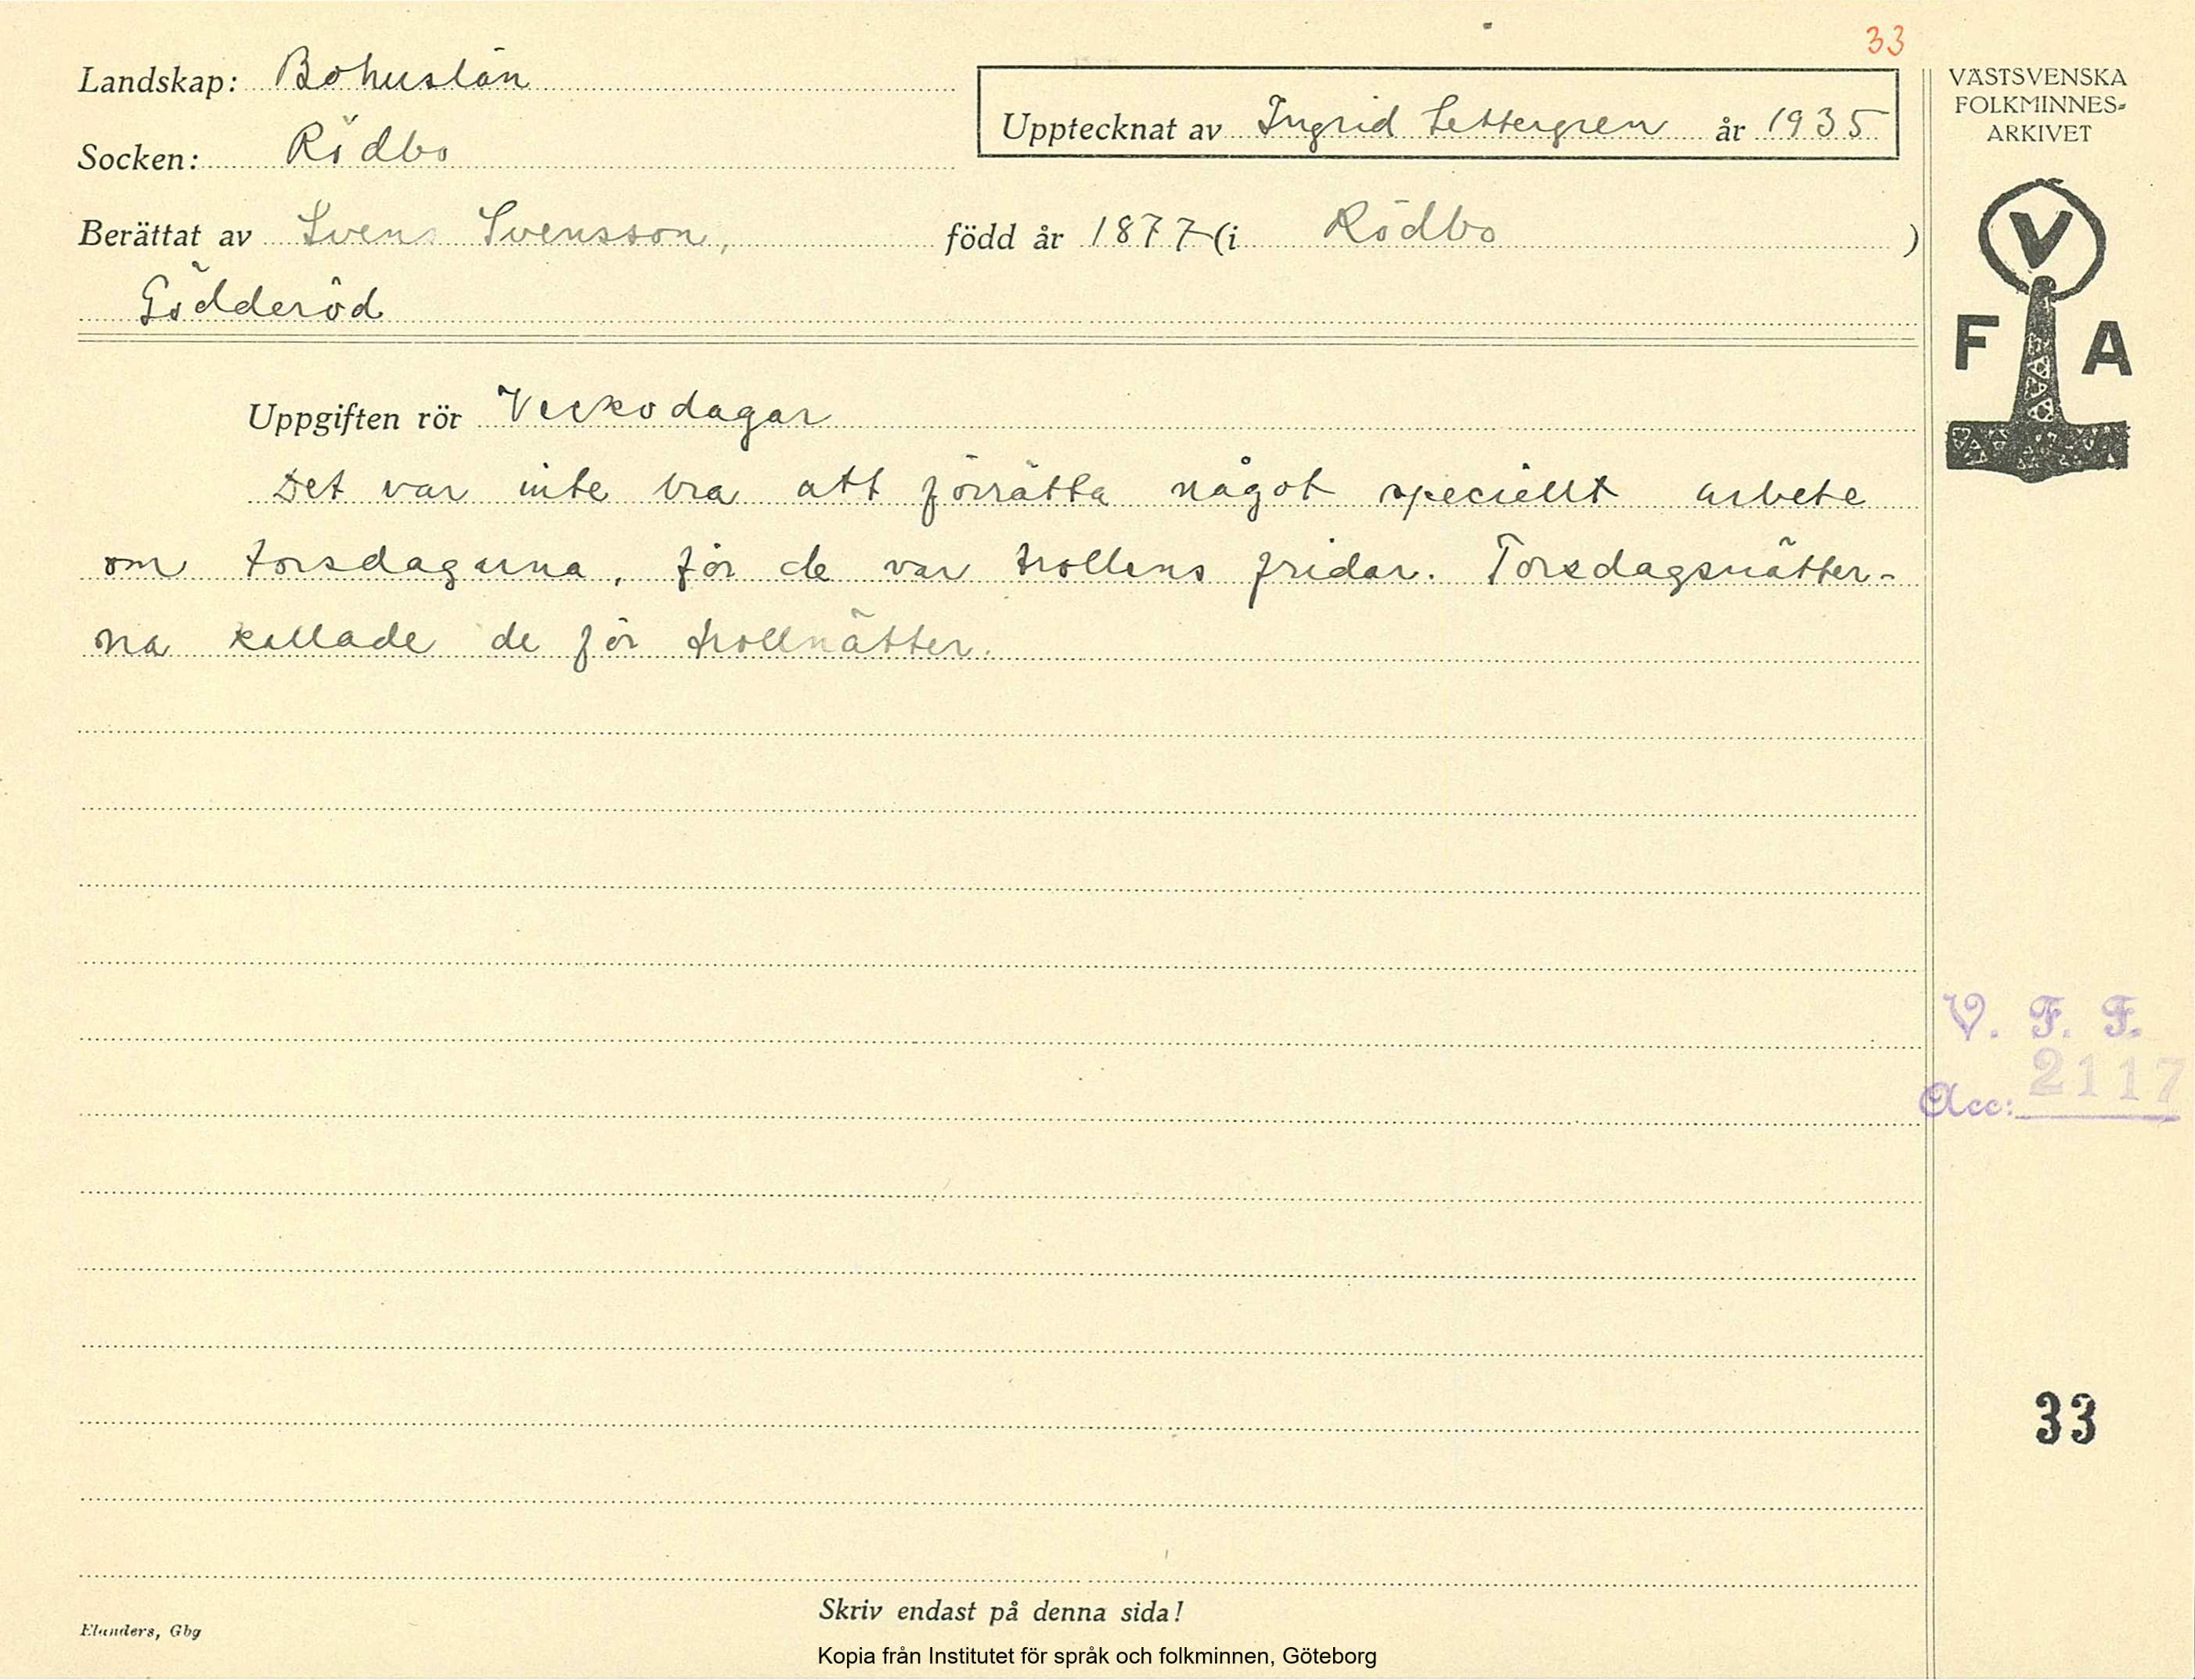 33
Landskap: Bohuslän
Socken: Rödbo
Upptecknat av Ingrid Settergren år 1935
Berättat av Sven Svensson, född år 1877 (i Rödbo)
Gödderöd
Uppgiften rör Veckodagar
Det var inte bra att förrätta något speciellt arbete
om torsdagarna, för de var trollens fridar. Torsdagsnätter-
na kallade de för trollnätter.
VÄSTSVENSKA
FOLKMINNES-
ARKIVET
V
F A
V. F. F.
Acc: 2117
33
Skriv endast på denna sida!
Elanders, Gbg
Kopia från Institutet för språk och folkminnen, Göteborg